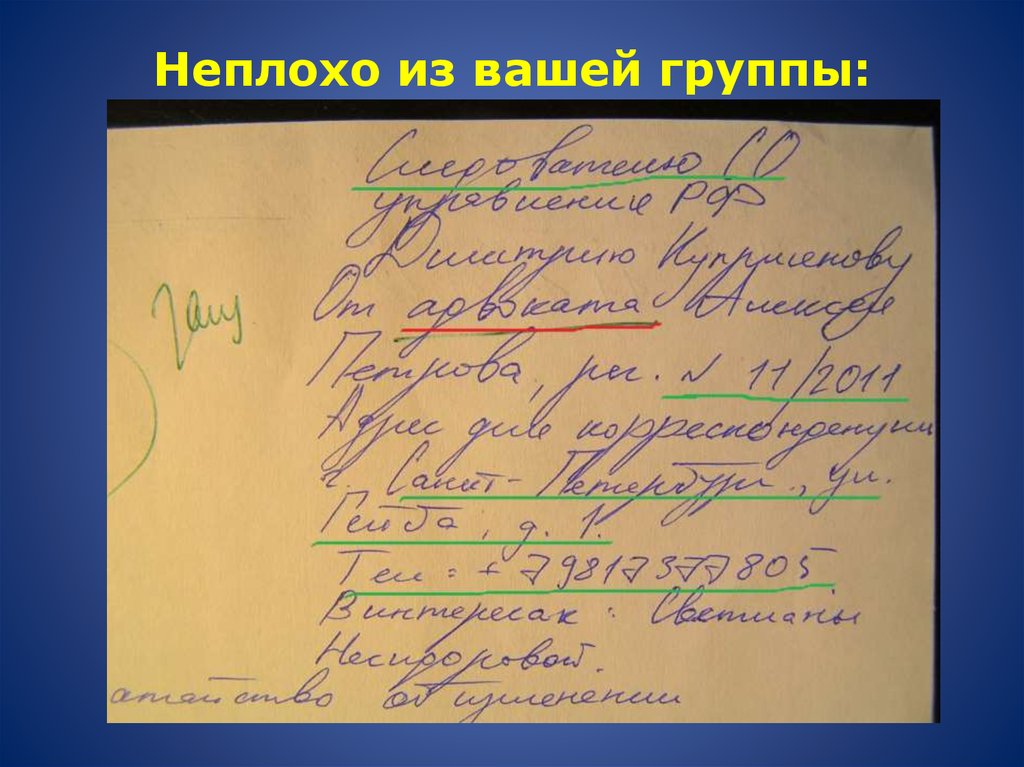 Неплохо из вашей группы:
Следователю СО
управления РФ
Дмитрию Куприенову
От адвоката Алексея
Петрова, рег. N 11/2011
Адрес для корреспонденции
г. Санкт-Петербург, ул.
Гейба, д. 1.
Тел: +79817377805
В интересах: Светланы
Несидоровой.
атайство об изменении